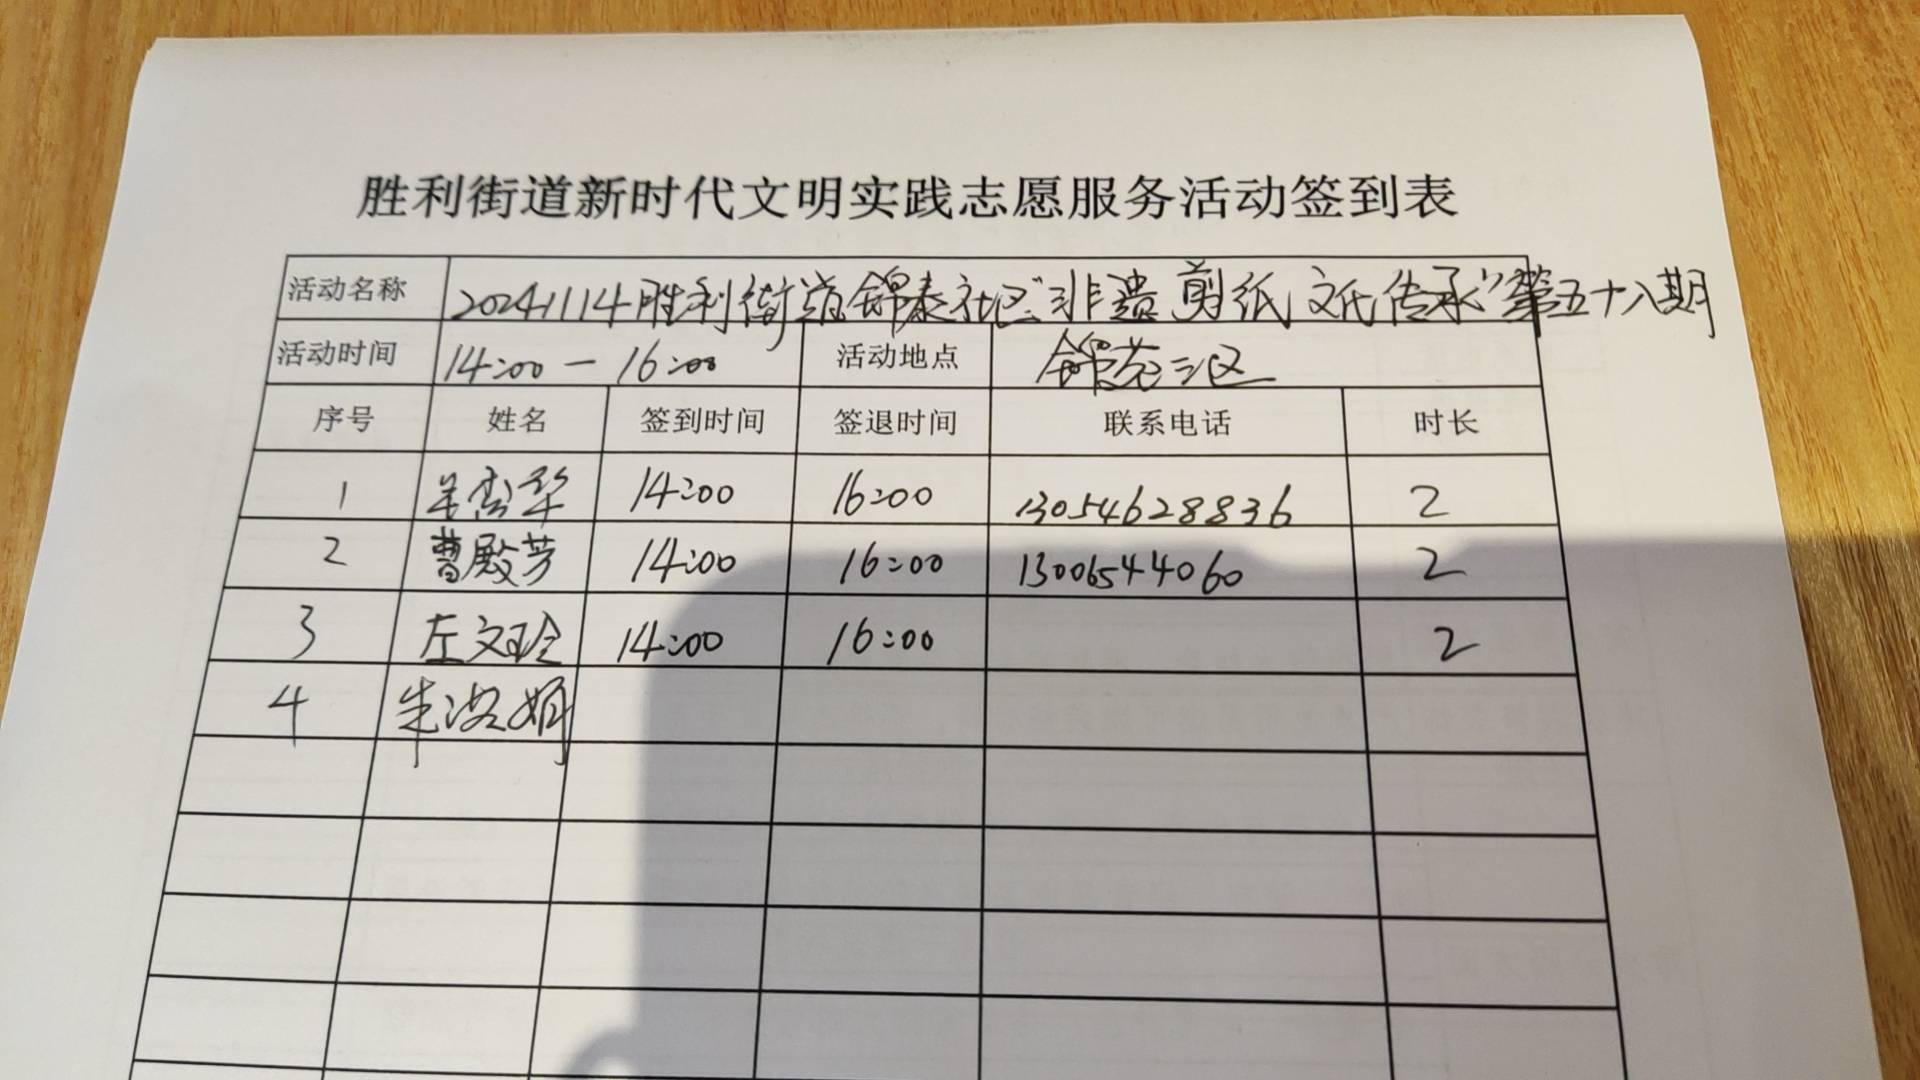 胜利街道新时代文明实践志愿服务活动签到表
活动名称 20241114胜利街道锦泰社区“非遗剪纸 文化传承”第五十八期
活动时间 14:00—16:00 活动地点 锦苑三区
序号 姓名 签到时间 签退时间 联系电话 时长
1 14:00 16:00 13054628836 2
2 曹殿芳 14:00 16:00 13006544060 2
3 左文玲 14:00 16:00 2
4 朱 娟